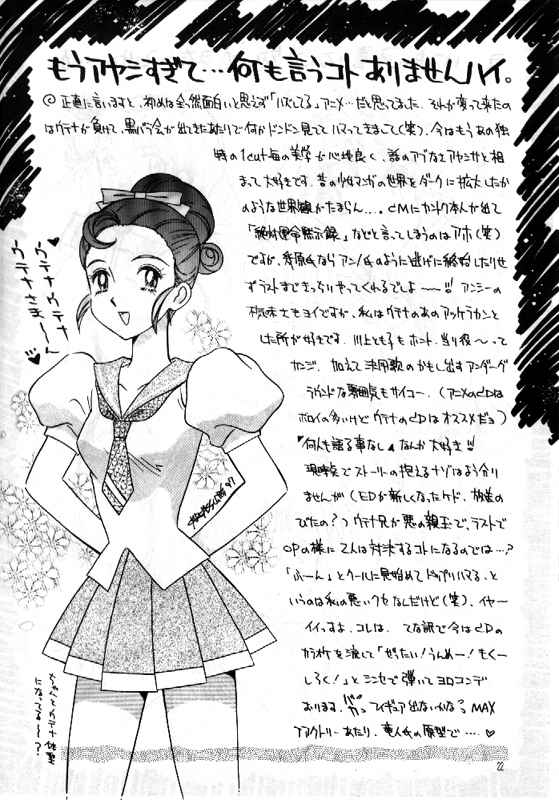 もうアヤシすぎて…何も言うコトありませんハイ。
◎正直に言いますと、初めは全然面白いと思えず「ハズしてる」アニメ…だと思ってました。それが変って来たの
はウテナが負けて、黒バラ会が出てきたあたりで何かドンドン見ててハマってきまして(笑)、今はもうあの独
特の1cut毎の美学が心地良く、話のアブなさアヤシサと相
まって大好きです。昔の少女マンガの世界をダークに拡大したか
のような世界観がたまらん…。CMにカントク本人が出て
「絶対運命黙示録」などと言ってしまうのはアホ(笑)
ですが、幾原氏ならアンノ氏のように逃げに終始したりせ
ずラストまできっちりやってくれるでしょ〜!!! アンシーの
さもヨイですが、私はウテナのあのアッケラカンと
した所が好きです。川上とも子もホント、当り役〜って
カンジ。加えて決闘歌のかもし出すアンダーグ
ラウンドな雰囲気もサイコー。(アニメのCDは
ボロイの多いけどウテナのCDはオススメだよ)
"何人も語る事なし"なんか大好き!!
現時点でストーリーの抱えるナゾはよう分り
ませんが(EDが新しくなったケド、放送の
びたの?)ウテナ兄が悪の親玉で、ラストで
OPの様に2人は対決するコトになるのでは…?
「ふーん」とクールに見始めてドップリハマる、と
いうのは私の悪いクセなんだけど(笑)、イヤー
イイっすよ、コレは。 てな訳で今はCDの
カラオケを流して「ぜったい!うんめー!もくー
しろく!」とシンセで弾いてヨロコンデ
おります。バカっ フィギュア出ないかな? MAX
ファクトリーあたり、竜人氏の原型で……♥
ウテナ ウテナ
ウテナさま〜〜ん
'97
ちゃんとウテナ体型
になってる〜?
22